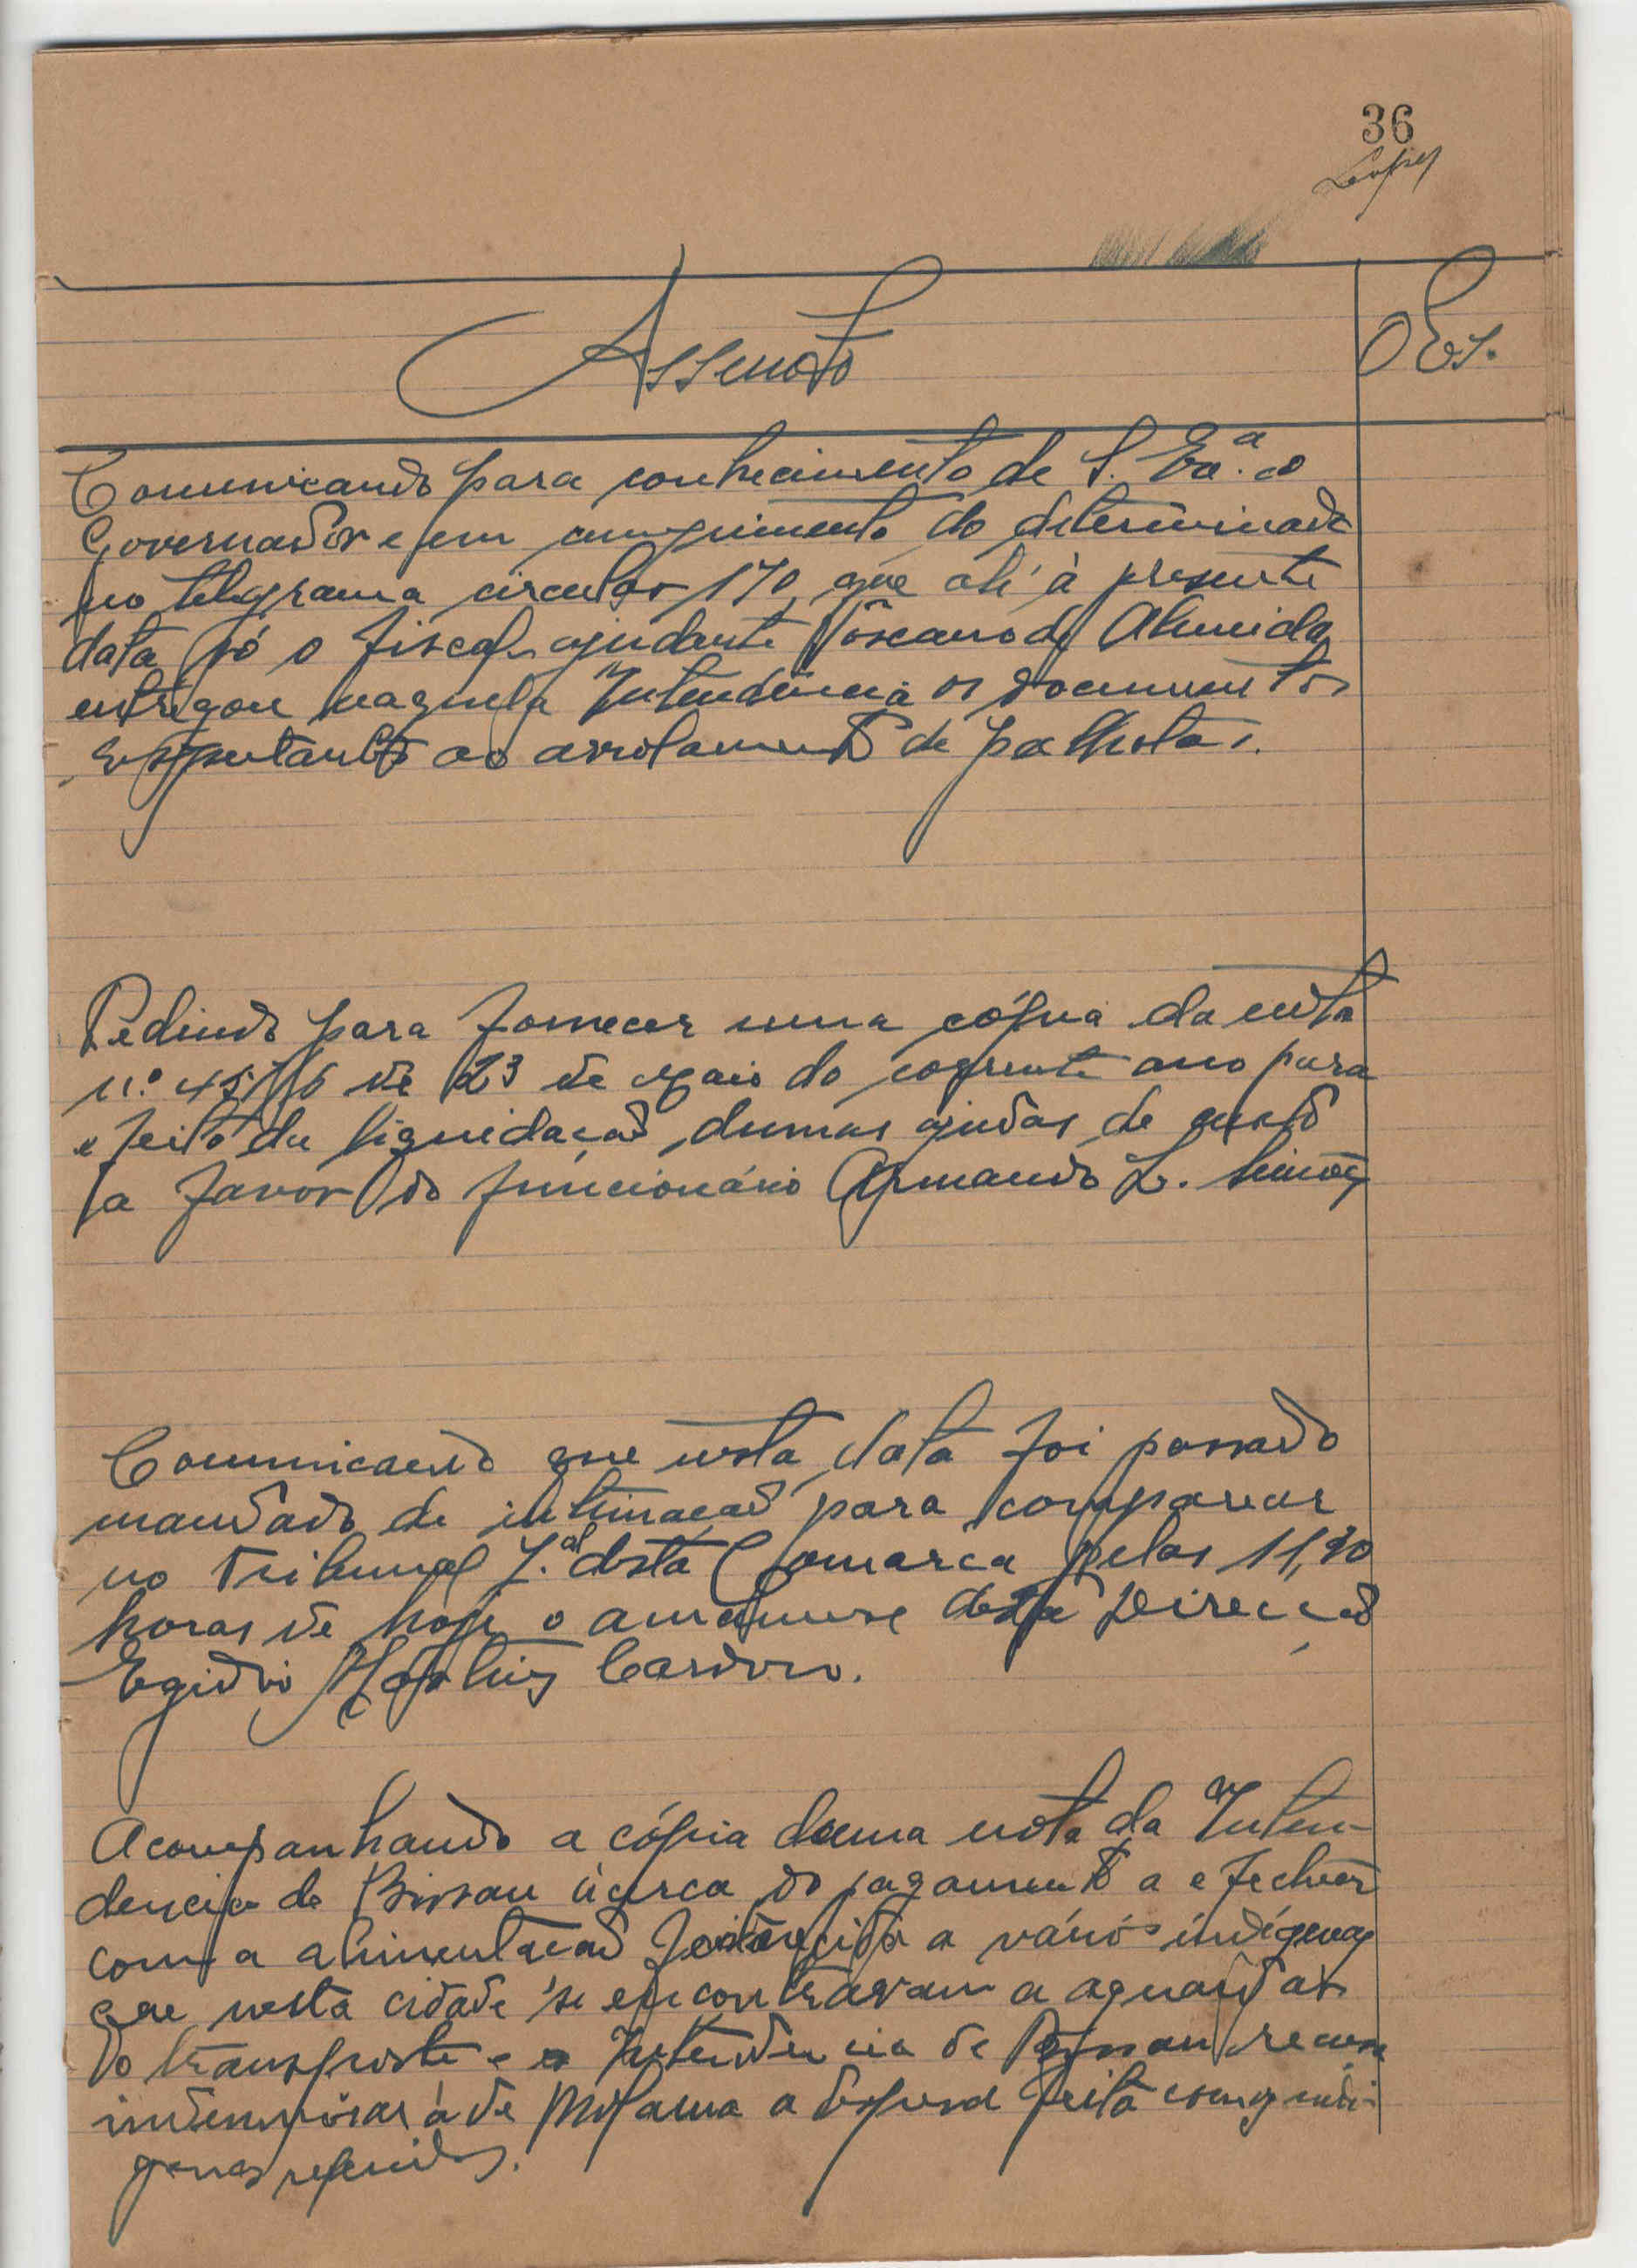 36
Lopes
Assunto
Obs.
Comunicando para conhecimento de S. Exa. o
Governador e em cumprimento do determinado
no telegrama circular 170, que até à presente
data só o fiscal ajudante de Almeida
entregou naquela Intendência os documentos
respeitantes ao arrolamento de palhotas.
Pedindo para fornecer uma cópia da nota
n.º de 23 de Maio do corrente ano para
efeito da liquidação dumas ajudas de custo
a favor do funcionário Armando L. Simões
Comunicando que nesta data foi passado
mandado de intimação para comparecer
no Tribunal J.al desta Comarca pelas 11,30
horas de hoje o amanuense desta Direcção
Egidio Martins Cardoso.
Acompanhando a cópia duma nota da Inten-
dencia de Bissau àcerca do pagamento a efectuar
com a alimentação fornecida a vários indígenas
que nesta cidade se encontravam a aguardar
transporte e a Intendencia de Bissau
indemnisar à de Bolama a despesa feita com os indí-
genas referidos.